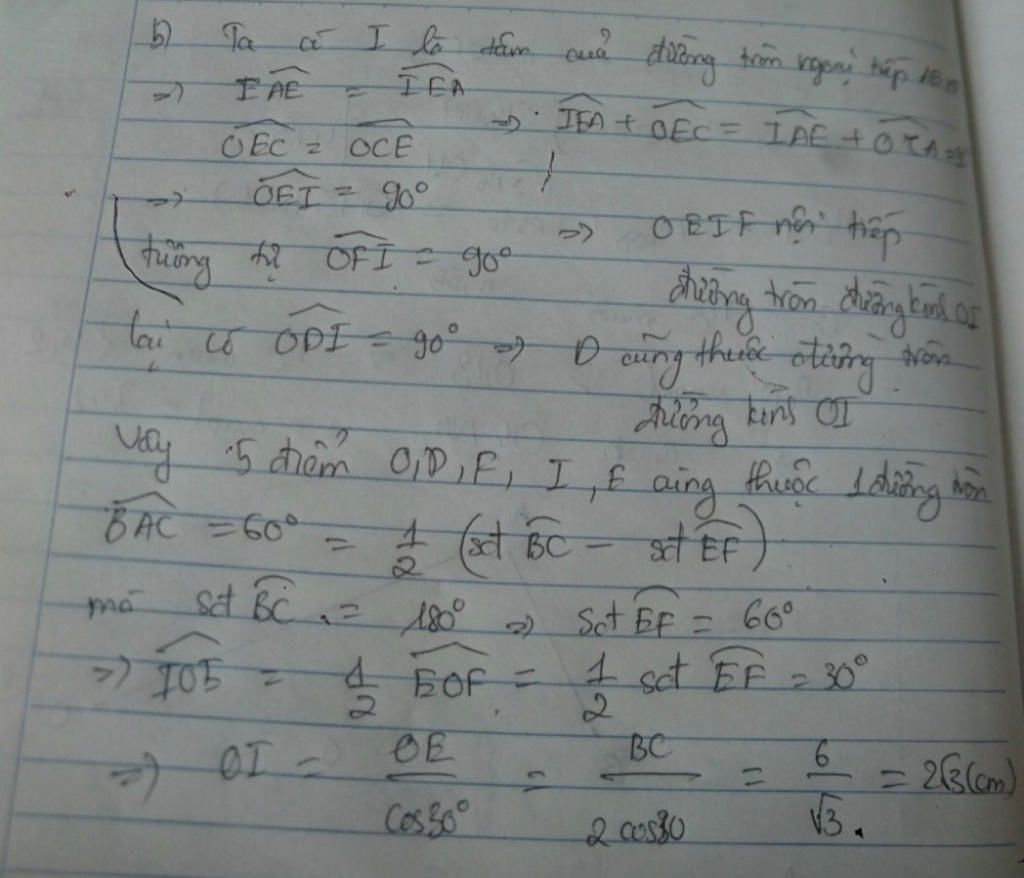 b) Ta có I là tâm của đường tròn ngoại tiếp
=> IAE = IEA
OEC = OCE => IEA + OEC = IAE + OCA =
=> OEI = 90° => OEIF nội tiếp
tương tự OFI = 90° đường tròn đường kính OI
lại có ODI = 90° => D cũng thuộc đường tròn
đường kính OI
Vậy 5 điểm O, D, F, I, E cùng thuộc 1 đường tròn
BAC = 60° = 1/2 (sđ BC - sđ EF)
mà sđ BC = 180° => sđ EF = 60°
=> IOE = 1/2 EOF = 1/2 sđ EF = 30°
=> OI = OE/cos30° = BC/2cos30 = 6/√3 = 2√3 (cm)